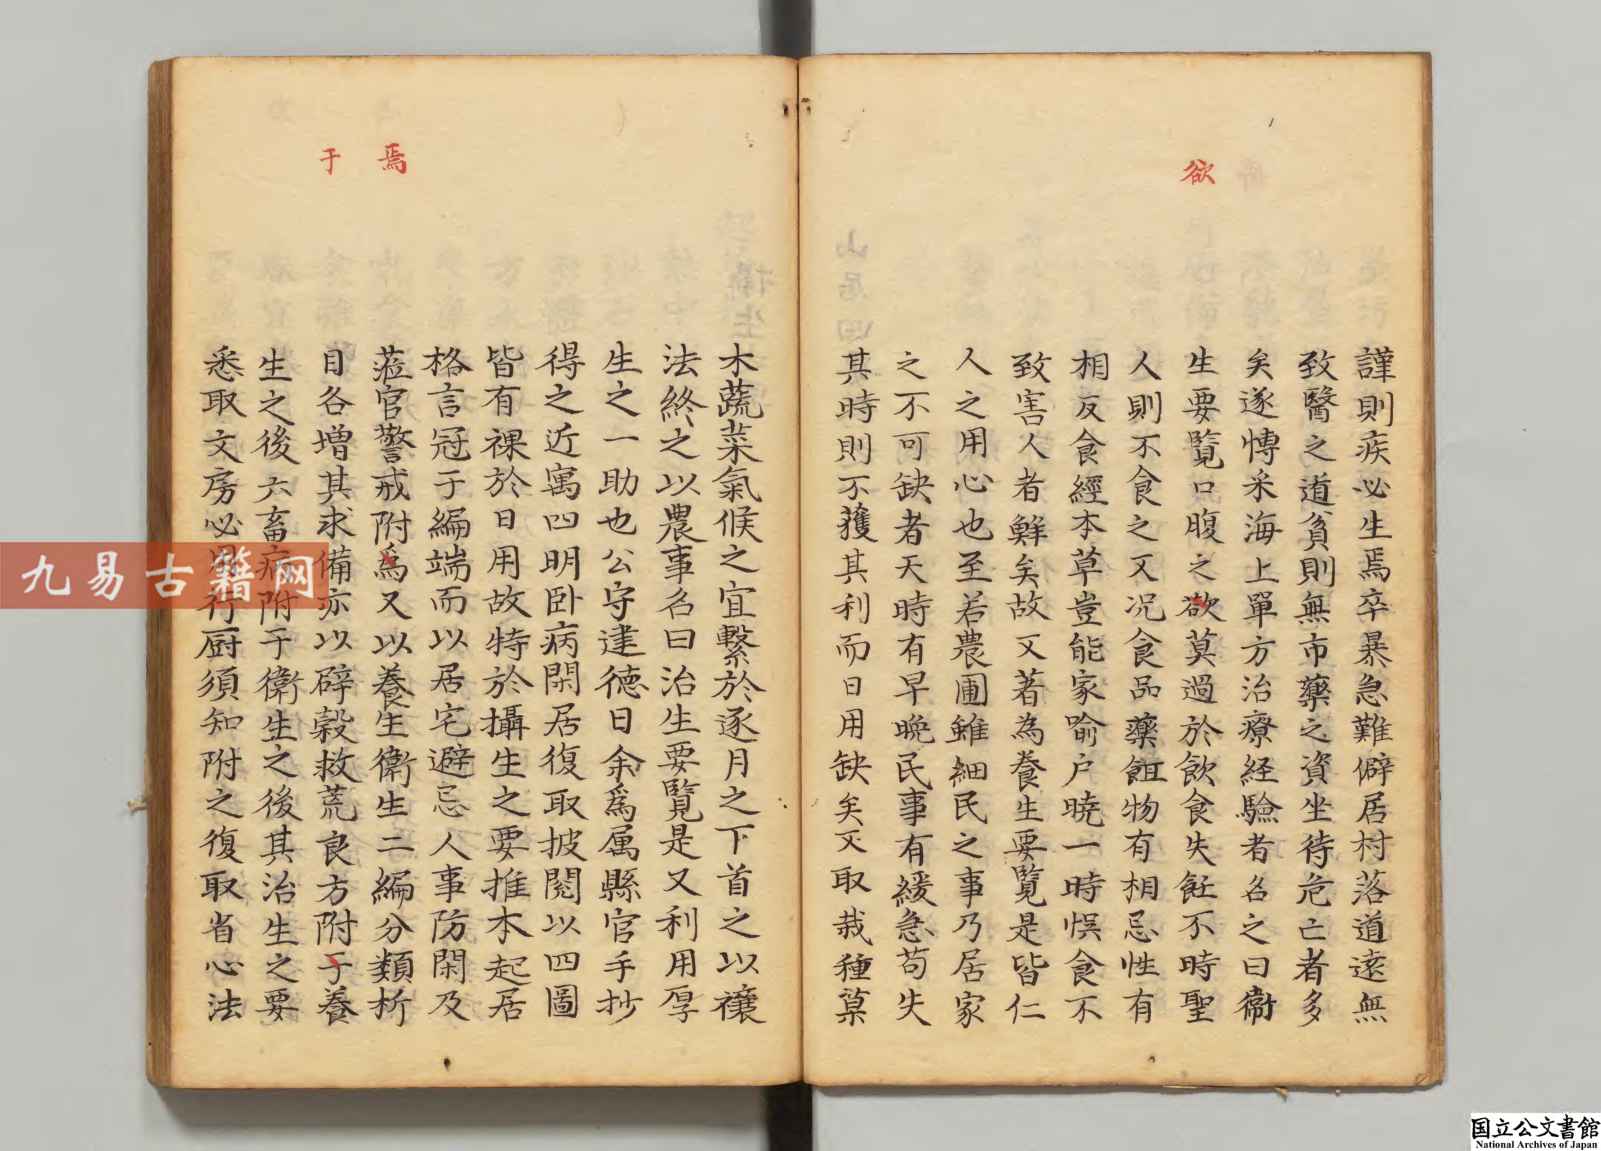 欲
謹則疾必生焉卒暴急難僻居村落道遠無
致醫之道貧則無市藥之資坐待危亡者多
矣遂愽采海上單方治療経驗者名之曰衞
生要覽口腹之欲莫過於飲食失飪不時聖
人則不食之又况食品藥餌物有相忌性有
相反食經本草豈能家喻户曉一時悞食不
致害人者鮮矣故又著為養生要覽是皆仁
人之用心也至若農圃雖細民之事乃居家
之不可缺者天時有早晩民事有緩急苟失
其時則不獲其利而日用缺矣又取栽種菓
木蔬菜氣候之宜繫於逐月之下首之以禳
法終之以農事名曰治生要覽是又利用厚
生之一助也公守建德日余爲属縣官手抄
得之近寓四明卧病閑居復取披閱以四圖
皆有裸於日用故特於攝生之要推本起居
格言冠于編端而以居宅避忌人事防閑及
焉
蒞官警戒附爲又以養生衛生二編分類析
于
目各増其求備亦以辟榖救荒良方附于養
生之後六畜病附于衛生之後其治生之要
悉取文房必用行厨須知附之復取省心法
九易古籍网
国立公文書館
National Archives of Japan